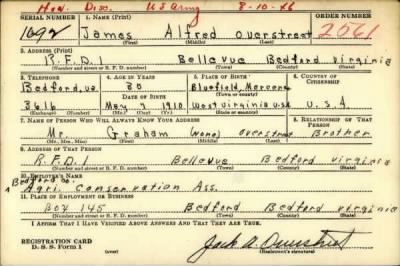 Hon. Disc. US Army 8-10-46
SERIAL NUMBER 1. NAME (Print) ORDER NUMBER
1692 James Alfred Overstreet 2561
(First) (Middle) (Last)
2. ADDRESS (Print)
R.F.D.1 Bellevue Bedford Virginia
(Number and street or R. F. D. number) (Town) (County) (State)
3. TELEPHONE 4. AGE IN YEARS 5. PLACE OF BIRTH 6. COUNTRY OF CITIZENSHIP
Bedford, va. 30 Bluefield, Mercer
DATE OF BIRTH (Town or county)
3616 May 7 1910 West virginia usa U.S.A
(Exchange) (Number) (Mo.) (Day) (Yr.) (State or country)
7. NAME OF PERSON WHO WILL ALWAYS KNOW YOUR ADDRESS 8. RELATIONSHIP OF THAT PERSON
Mr. Graham (none) overstreet Brother
(Mr., Mrs., Miss) (First) (Middle) (Last)
9. ADDRESS OF THAT PERSON
R.F.D.1 Bellevue Bedford virginia
(Number and street or R. F. D. number) (Town) (County) (State)
10. EMPLOYER'S NAME
Bedford Co.
Agri. Conservation Ass.
11. PLACE OF EMPLOYMENT OR BUSINESS
Box 145 Bedford Bedford virginia
(Number and street or R. F. D. number) (Town) (County) (State)
I AFFIRM THAT I HAVE VERIFIED ABOVE ANSWERS AND THAT THEY ARE TRUE.
REGISTRATION CARD
D. S. S. Form 1
Jack A. Overstreet
(Registrant's signature)